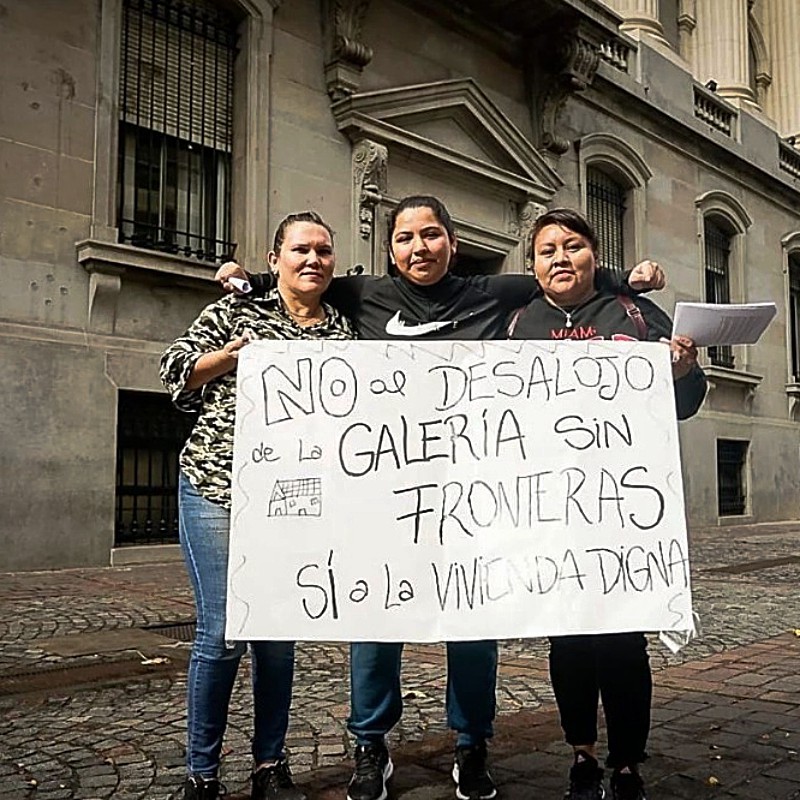 MIAMI
NO al DESALOJO
de la GALERÍA SIN
FRONTERAS
SÍ a La VIVIENDA DIGNA